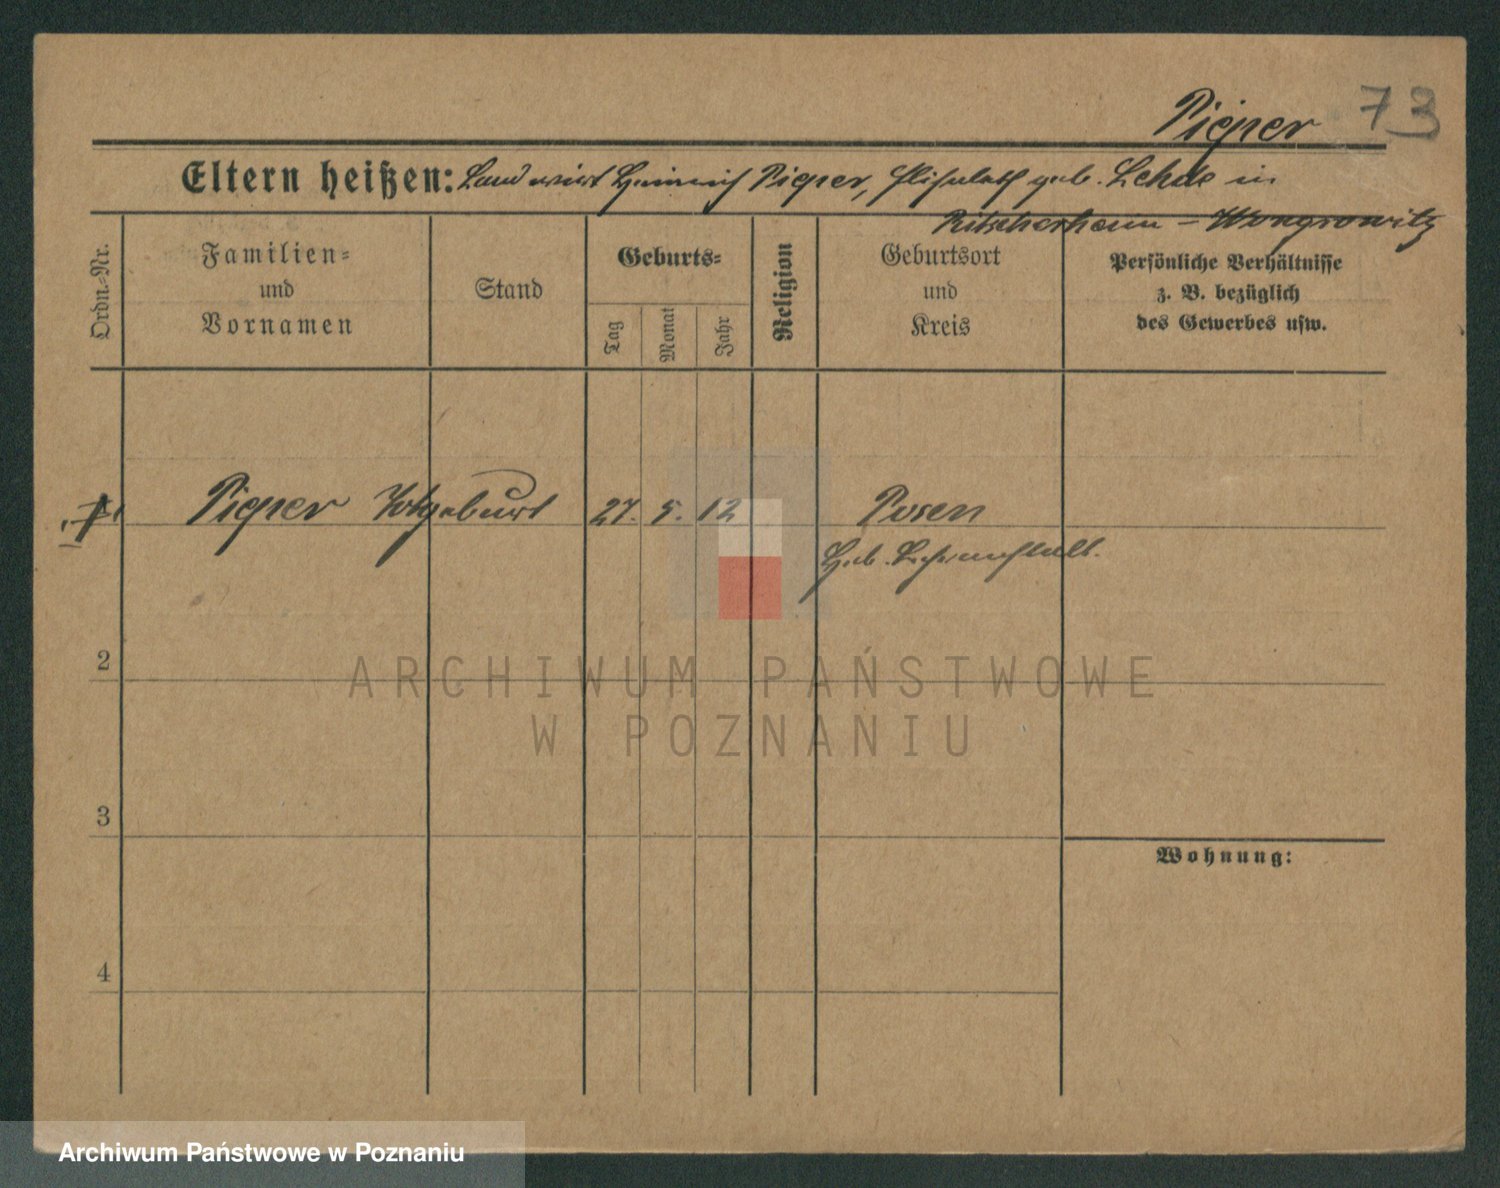 Pieper 73
Eltern heißen: Landwirt Heinrich Pieper, Elisabeth geb. Lehde in
Ritscherheim - Wongrowitz
Ordn.-Nr.
Familien-
und
Vornamen
Stand
Geburts-
Tag
Monat
Jahr
Religion
Geburtsort
und
Kreis
Persönliche Verhältnisse
z. B. bezüglich
des Gewerbes usw.
1 Pieper Totgeburt 27. 5. 12 Posen
Heb. Lehranstalt.
2
ARCHIWUM PAŃSTWOWE
W POZNANIU
3
Wohnung:
4
Archiwum Państwowe w Poznaniu